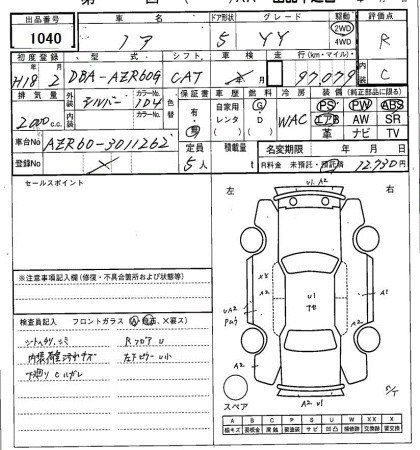 出品番号 車名 ドア形状 グレード 駆動 評価点
1040 ノア 5 YY 2WD 4WD R
初度登録 型式 シフト 車検 走行(km・マイル) 内装
H18年2月 DBA-AZR60G CAT 年 月 97,079 C
排気量 外装 カラーNo. 色替 保証書 車歴 燃料 冷房 装備(純正部品に限る)
2000c.c. シルバー 1D4 有・無 自家用 レンタ G D WAC PS PW ABS
内装 カラーNo. エアB AW SR
革 ナビ TV
車台No AZR60-3011262 定員 5人 積載量 t 名変期限 年 月 日
登録No R料金 未預託・預託済 12,730円
セールスポイント
左 右
U1.A2
※注意事項記入欄(修復・不具合箇所および状態等)
XX A2 A2
UA2 U1 A1
A2
検査員記入 フロントガラス(A・飛石・X要ス)
シートスリ、シミ RフロアU
内張荷室コスリキズ 左下ピラーU小
下廻りCハガレ
スペア A2.U1 S/T
A B C P S U W X XX X
線キズ 要板金 腐蝕 要塗装 サビ 凹凸 補修跡 要交換 交換跡 要交換